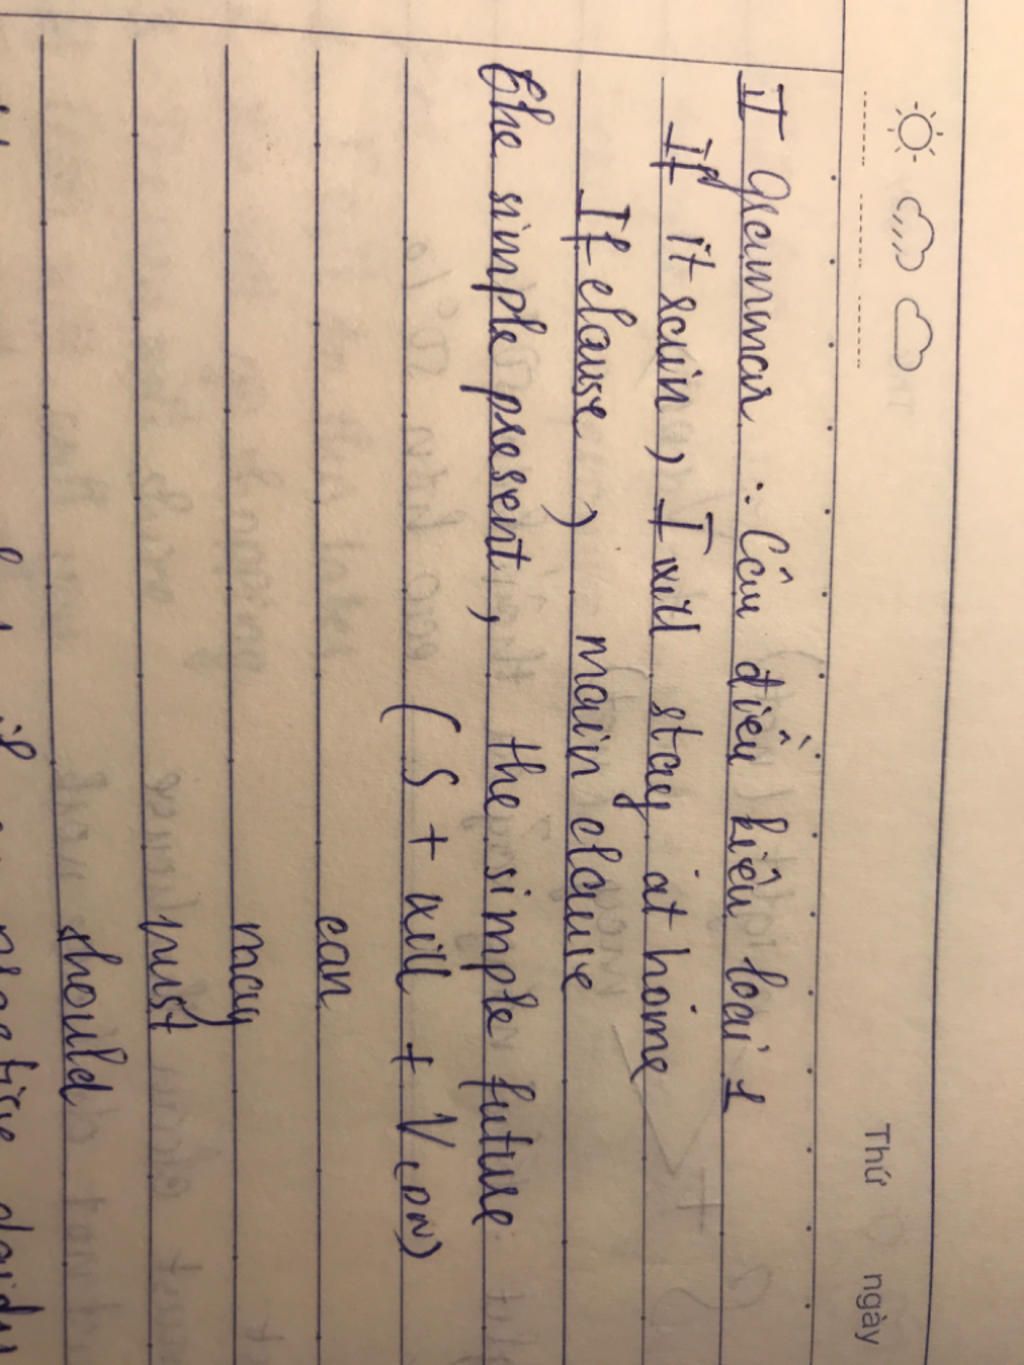 Thứ ngày
II Grammar : Câu điều kiện loại 1
If it rain, I will stay at home
If clause, main clause
the simple present, the simple future
( S + will + V (DN)
can
may
must
should
if practise